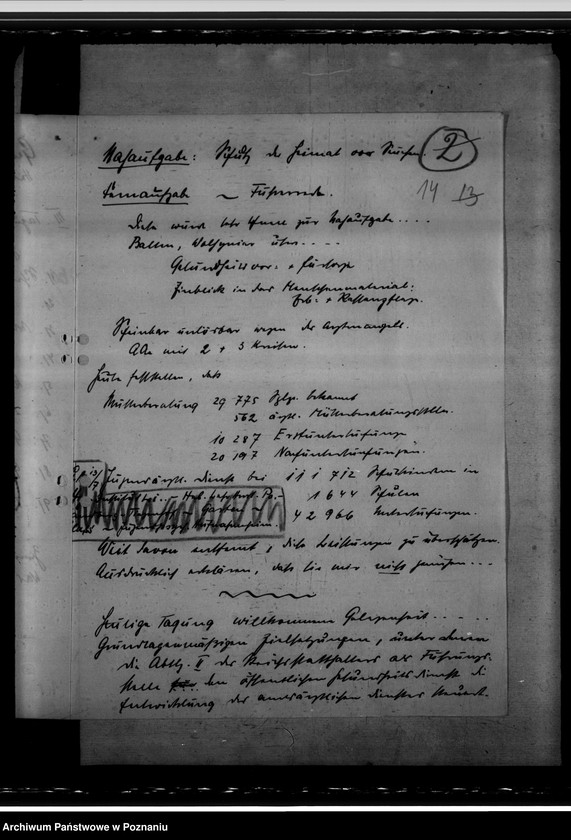 Nahaufgabe: Schutz der Heimat vor Seuchen.
2
14 13
Fernaufgabe ~ Führerrede.
Diese wurde sehr schnell zur Nahaufgabe....
Balten, Wolhynier usw.....
Gesundheitsvor: + fürsorge
Einblick in das Menschenmaterial:
Erb: + Rassenpflege.
Scheinbar unlösbar wegen des Ärztemangels.
AÄe mit 2 + 3 Kreisen.
Heute feststellen, dass
Mütterberatung 29 775 Sglge. bekannt
562 ärztl. Mütterberatungsstellen.
10 287 Erstuntersuchungen
20 197 Nachuntersuchungen.
Jugendärztl. Dienst bei 111 712 Schulkindern in
1644 Schulen
42 966 Untersuchungen.
Weit davon entfernt, diese Leistungen zu überschätzen.
Ausdrücklich erklären, dass sie mir nicht genügen...
Heutige Tagung willkommene Gelegenheit.....
Grundlagenmässigen Zielsetzungen, unter denen
die Abtlg. II des Reichsstatthalters als Führungs-
stelle den öffentlichen Gesundheitsdienst die
Entwicklung des amtsärztlichen Dienstes steuert.
Archiwum Państwowe w Poznaniu